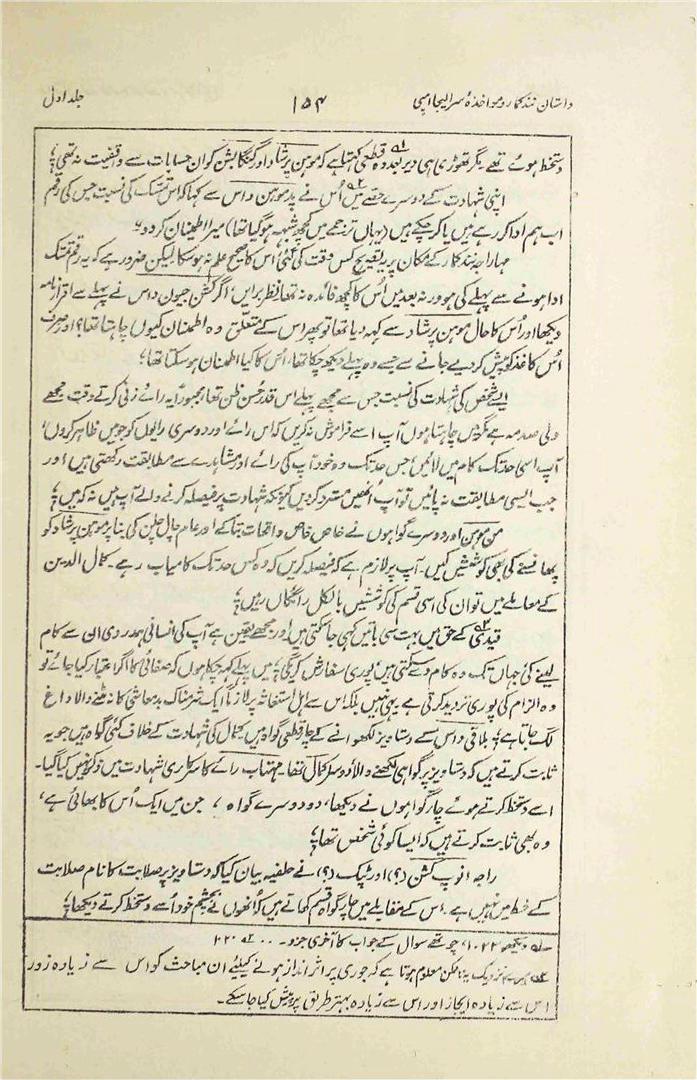 داستان نندکمار و مواخذۂ سرالیجا امپی ۱۵۴ جلد اول
دستخط ہوئے تھے۔ مگر تھوڑی ہی دیر بعد وہ قطعی کہتا ہے کہ موہن پرشاد اور گنگابشن کو ان حسابات سے واقفیت نہ تھی؛
اپنی شہادت کے دوسرے حصے میں اُس نے پدموہن داس سے کہا کہ اس تمسک کی نسبت جس کی رقم
اب ہم ادا کر رہے ہیں یا کر چکے ہیں (یہاں ترجمے میں کچھ شبہہ ہوگیا تھا) میرا اطمینان کردو؛
مہاراجہ نندکمار کے مکان پر یہ تصحیح کس وقت کی گئی اس کا صحیح علم نہ ہو سکا لیکن ضرور ہے کہ یہ رقم تمسک
ادا ہونے سے پہلے کی ہو ورنہ بعد میں اُس کا کچھ فائدہ نہ تھا نظر برایں، اگر کشن جیون داس نے پہلے سے اقرارنامہ
دیکھا اور اُس کا حال موہن پرشاد سے کہہ دیا تھا تو پھر اس کے متعلق وہ اطمنان کیوں چاہتا تھا؟ اور صرف
اُس کاغذ کو پیش کردیے جانے سے جسے وہ پہلے دیکھ چکا تھا، اُس کا کیا اطمنان ہو سکتا تھا؛
ایسے شخص کی شہادت کی نسبت جس سے مجھے پہلے اس قدر حُسن ظن تھا، مجبوراً یہ رائے زنی کرتے وقت مجھے
دلی صدمہ ہے مگر میں چاہتا ہوں آپ اسے فراموش نہ کریں کہ اس رائے اور دوسری رایوں کو جو میں ظاہر کروں،
آپ اسی حد تک کام میں لائیں جس حد تک وہ خود آپ کی رائے اور مشاہدے سے مطابقت رکھتی ہیں اور
جب ایسی مطابقت نہ پائیں تو آپ اُنھیں مسترد کردیں کیونکہ شہادت پر فیصلہ کرنے والے آپ ہیں نہ کہ میں؛
من موہن اور دوسرے گواہوں نے خاص خاص واقعات بتا کے اور عام چال چلن کی بنا پر موہن پرشاد کو
پھانسنے کی بھی کوششیں کیں۔ آپ پر لازم ہے کہ فیصلہ کریں کہ وہ کس حد تک کامیاب رہے۔ کمال الدین
کے معاملے میں تو ان کی اسی قسم کی کوششیں بالکل رائگاں رہیں؛
قیدی کے حق میں بہت سی باتیں کہی جا سکتی ہیں اور مجھے یقین ہے آپ کی انسانی ہمدردی ان سے کام
لینے کی جہاں تک وہ کام دے سکتی ہیں پوری سفارش کریگی؛ میں پہلے کہہ چکا ہوں کہ صفائی کا اگر اعتبار کیا جائے تو
وہ الزام کی پوری تردید کرتی ہے یہی نہیں بلکہ اس سے اہل استغاثہ پر لازماً ایک شرمناک بدمعاشی کا نہ مٹنے والا داغ
لگ جاتا ہے؛ بلاقی داس کے دستاویز لکھوانے کے چار قطعی گواہ ہیں۔ کمال کی شہادت کے خلاف کئی گواہ ہیں جو یہ
ثابت کرتے ہیں کہ دستاویز پر گواہی لکھنے والا دوسرا کمال تھا۔ مہتاب رائے کا سرکاری شہادت میں ذکر نہیں کیا گیا۔
اسے دستخط کرتے ہوئے چار گواہوں نے دیکھا، دو دوسرے گواہ، جن میں ایک اُس کا بھائی ہے،
وہ بھی ثابت کرتے ہیں کہ ایسا کوئی شخص تھا؛
راجہ انوپ کشن (؟) اور ٹپک (؟) نے حلفیہ بیان کیا کہ دستاویز پر صلابت کا نام صلابت
کے خط میں نہیں ہے۔ اس کے مقابلے میں چار گواہ قسم کھاتے ہیں کہ انھوں نے بچشم خود اُسے دستخط کرتے دیکھا؛
۱؎ دیکھو ۱۰۲۲، چوتھے سوال کے جواب کا آخری جزو۔ ۲؎ ۱۰۲۰
۳؎ میرے نزدیک یہ ناممکن معلوم ہوتا ہے کہ جوری پر اثر انداز ہونے کیلئے ان مباحث کو اس سے زیادہ زور
اس سے زیادہ ایجاز اور اس سے زیادہ بہتر طریق پر پیش کیا جا سکے۔